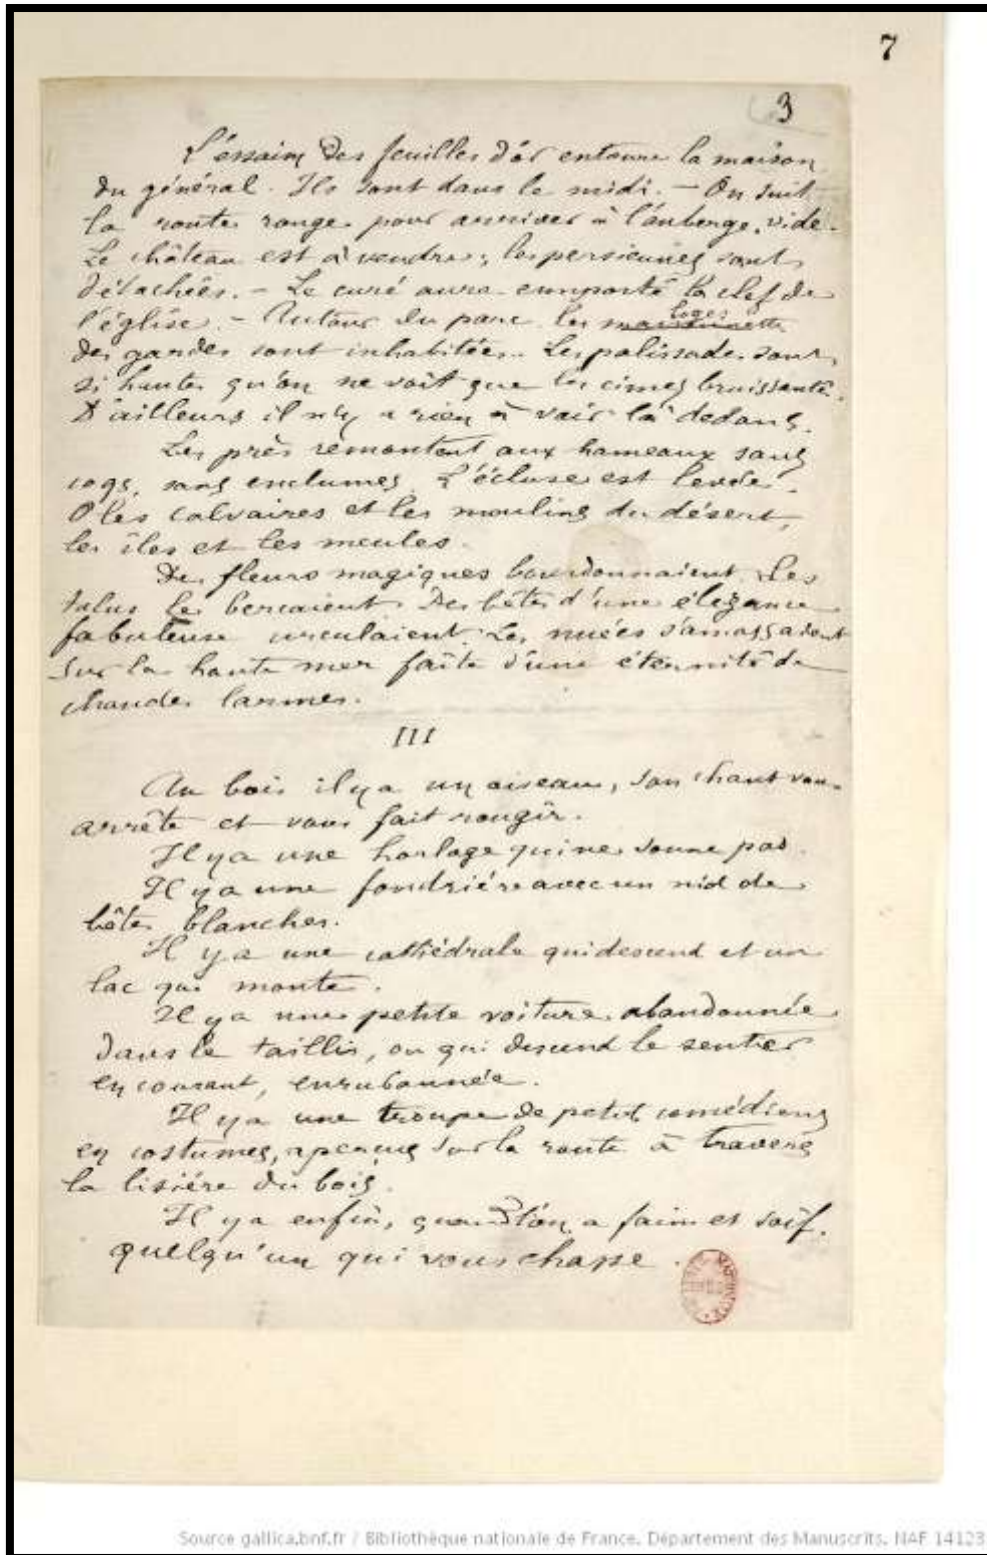 7
3
L'essaim des feuilles d'or entoure la maison
du général. Ils sont dans le midi. — On suit
la route rouge pour arriver à l'auberge vide.
Le château est à vendre ; les persiennes sont
détachées. — Le curé aura emporté la clef de
l'église. — Autour du parc les loges
des gardes sont inhabitées. Les palissades sont
si hautes qu'on ne voit que les cimes bruissantes.
D'ailleurs il n'y a rien à voir là dedans.
Les près remontent aux hameaux sans
coqs, sans enclumes. L'écluse est levée.
O les calvaires et les moulins du désert,
les îles et les meules.
Des fleurs magiques bourdonnaient. Les
talus le berçaient. Des bêtes d'une élégance
fabuleuse circulaient. Les nuées s'amassaient
sur la haute mer faite d'une éternité de
chaudes larmes.
III
Au bois il y a un oiseau, son chant vous
arrête et vous fait rougir.
Il y a une horloge qui ne sonne pas.
Il y a une fondrière avec un nid de
bêtes blanches.
Il y a une cathédrale qui descend et un
lac qui monte.
Il y a une petite voiture abandonnée
dans le taillis, ou qui descend le sentier
en courant, enrubannée.
Il y a une troupe de petits comédiens
en costumes, aperçus sur la route à travers
la lisière du bois.
Il y a enfin, quand l'on a faim et soif,
quelqu'un qui vous chasse.
Source gallica.bnf.fr / Bibliothèque nationale de France. Département des Manuscrits. NAF 14123